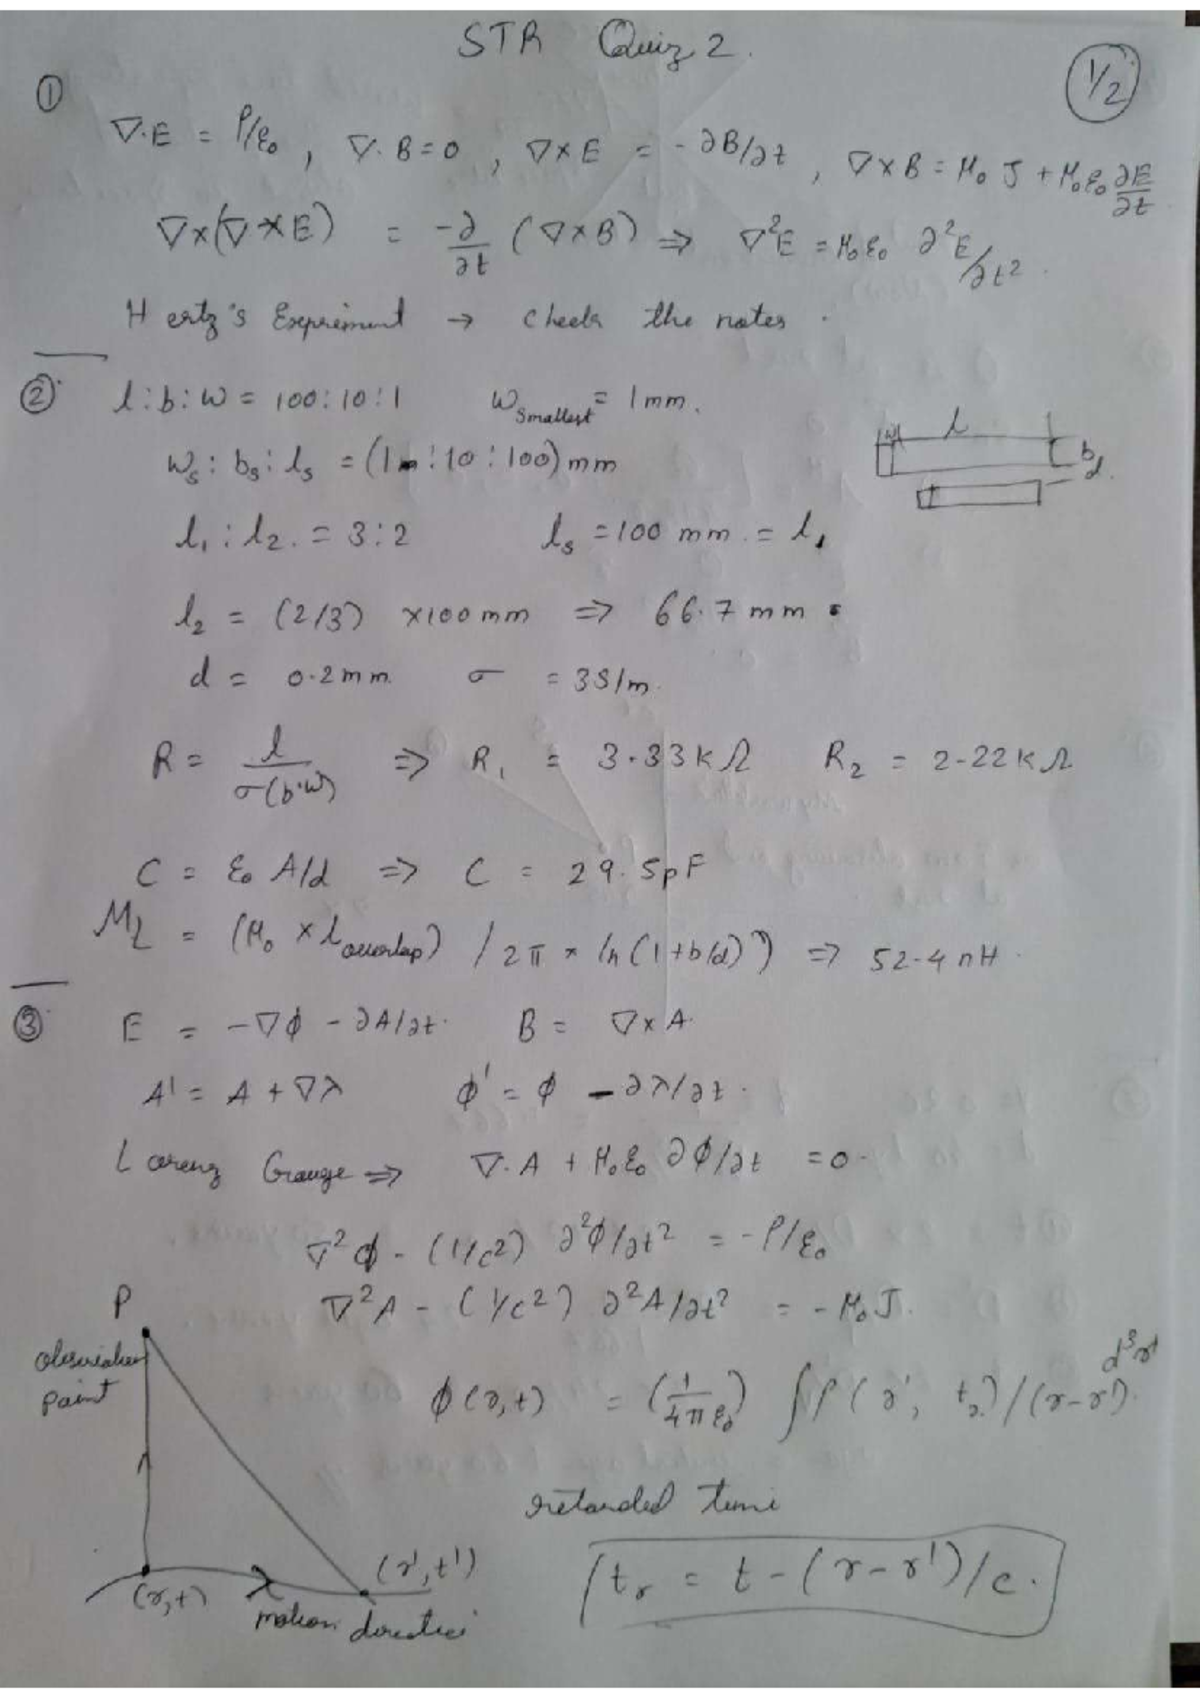 STR Quiz 2.
1/2
①
∇·E = ρ/ε₀ , ∇·B = 0 , ∇×E = -∂B/∂t , ∇×B = μ₀ J + μ₀ε₀ ∂E/∂t
∇×(∇×E) = -∂/∂t (∇×B) ⇒ ∇²E = μ₀ε₀ ∂²E/∂t².
Hertz's Expriment → Check the notes.
② l:b:w = 100:10:1 w_smallest = 1mm.
w_s : b_s : l_s = (1 : 10 : 100) mm
l b d w
l₁ : l₂ = 3:2 l_s = 100 mm = l₁
l₂ = (2/3) ×100mm ⇒ 66.7 mm
d = 0.2mm σ = 3S/m.
R = l/σ(b·w) ⇒ R₁ = 3.33KΩ R₂ = 2.22KΩ
C = ε₀ A/d ⇒ C = 29.5pF
M_L = (μ₀ × l_overlap) / 2π × ln(1+b/d)) ⇒ 52.4 nH.
③ E = -∇ϕ - ∂A/∂t. B = ∇×A.
A' = A + ∇λ ϕ' = ϕ - ∂λ/∂t.
Lorenz Gauge ⇒ ∇·A + μ₀ε₀ ∂ϕ/∂t = 0.
∇²ϕ - (1/c²) ∂²ϕ/∂t² = -ρ/ε₀
∇²A - (1/c²) ∂²A/∂t² = -μ₀J.
P
observation
point
ϕ(r,t) = (1/4πε₀) ∫ρ(r', t_r)/(r-r') d³r'
retarded time
t_r = t - (r-r')/c.
(r,t)
(r',t')
motion direction